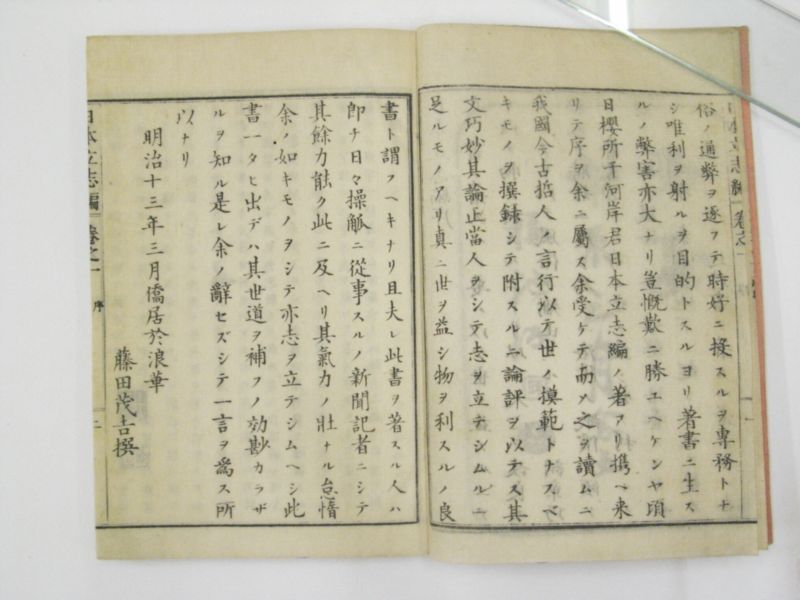 俗ノ通弊ヲ逐フテ時好ニ投スルヲ専務トナ
シ唯利ヲ射ルヲ目的トスルヨリ著書ニ生ス
ルノ弊害亦大ナリ豈慨歎ニ勝ユヘケンヤ頃
日櫻所千河岸君日本立志編ノ著アリ携ヘ来
リテ序ヲ余ニ屬ス余受ケテ而〆之ヲ讀ムニ
我國今古哲人ノ言行以テ世ノ摸範トナスベ
キモノヲ撰録シテ附スルニ論評ヲ以テス其
文巧妙其論正當人ヲシテ志ヲ立テシムルニ
足ルモノアリ真ニ世ヲ益シ物ヲ利スルノ良
書ト謂フヘキナリ且夫レ此書ヲ著スル人ハ
即チ日々操觚ニ從事スルノ新聞記者ニシテ
其餘力能ク此ニ及ヘリ其氣力ノ壮ナル怠惰
余ノ如キモノヲシテ亦志ヲ立テシムヘシ此
書一タヒ出デハ其世道ヲ補フノ効尠カラザ
ルヲ知ル是レ余ノ辭セズシテ一言ヲ爲ス所
以ナリ
明治十三年三月僑居於浪華
藤田茂吉撰
日本立志編 卷之一 序 二